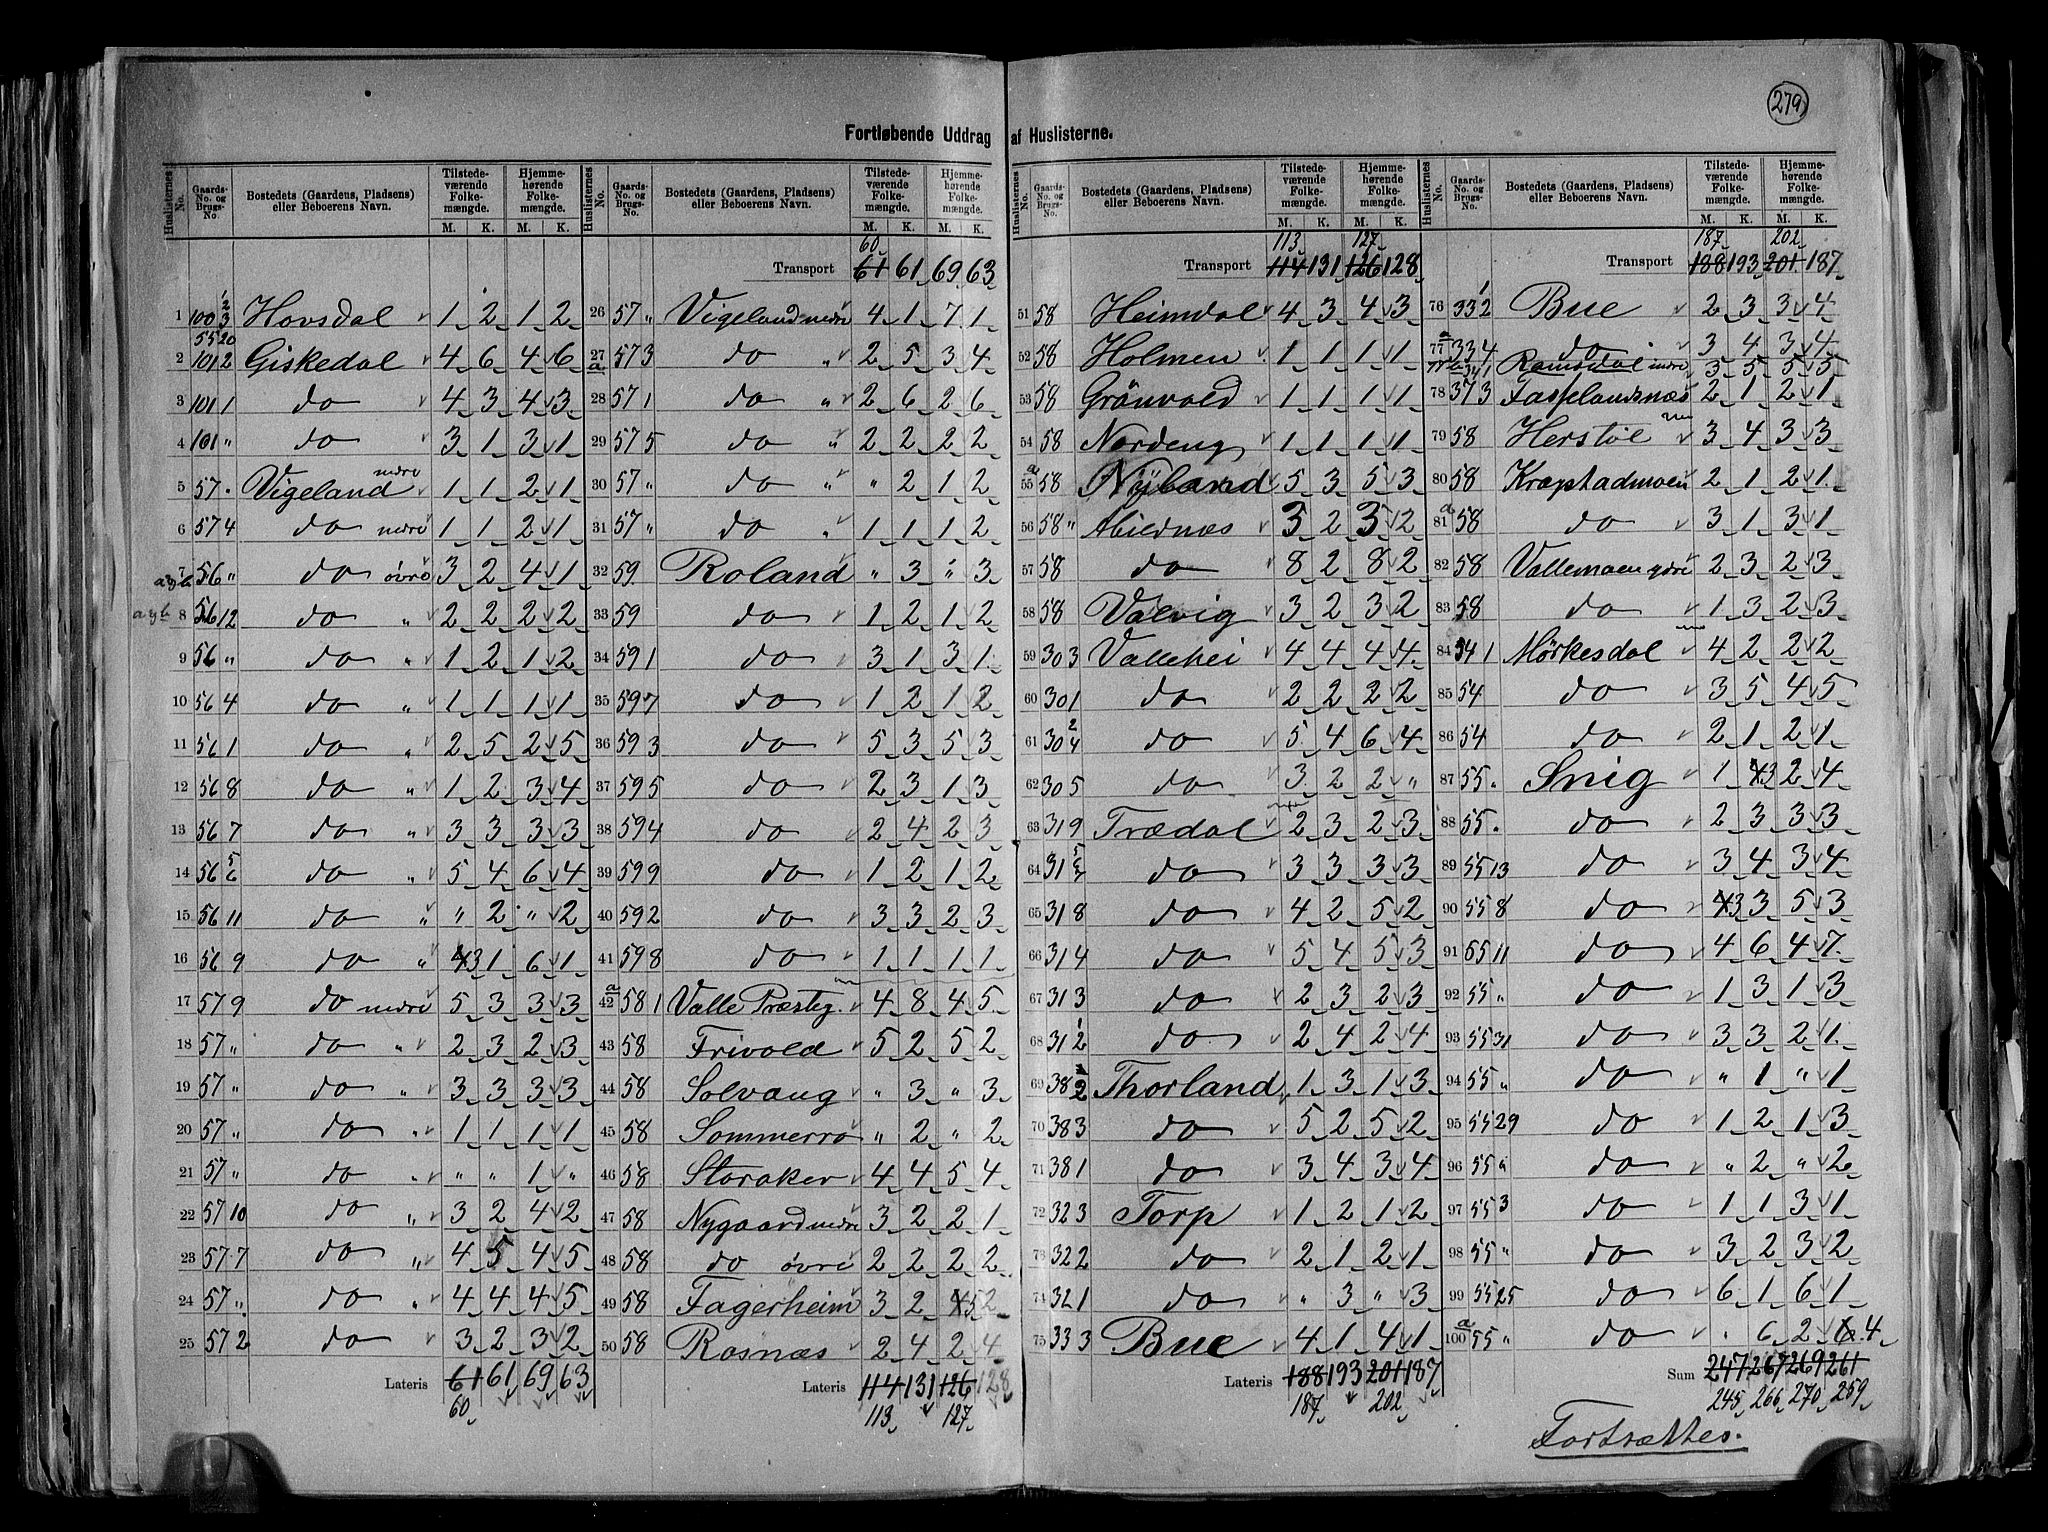 279
Fortløbende Uddrag af Huslisterne.
Huslisternes No. Gaards-No. og Brugs-No. Bostedets (Gaardens, Pladsens) eller Beboerens Navn. Tilstedeværende Folkemængde. M. K. Hjemmehørende Folkemængde. M. K.
1 100 2/3 Hovsdal 1 2 1 2
55 20
2 101 2 Giskedal 4 6 4 6
3 101 1 do 4 3 4 3
4 101 " do 3 1 3 1
5 57 " Vigeland nedre 1 1 2 1
6 57 4 do nedre 1 1 2 1
7 56 " do øvre 3 2 4 1
8 56 12 do " 2 2 2 2
9 56 " do " 1 2 1 2
10 56 4 do " 1 1 1 1
11 56 1 do " 2 5 2 5
12 56 8 do " 1 2 3 4
13 56 7 do " 3 3 3 3
14 56 5/6 do " 5 4 6 4
15 56 11 do " " 2 " 2
16 56 9 do " 4 3 1 6 1
17 57 9 do nedre 5 3 3 3
18 57 " do " 2 3 2 3
19 57 " do " 3 3 3 3
20 57 " do " 1 1 1 1
21 57 " do " " " 1 "
22 57 10 do " 3 2 4 2
23 57 7 do " 4 5 4 5
24 57 " do " 4 4 4 5
25 57 2 do 3 2 3 2
Lateris 61 61 69 63
60
Huslisternes No. Gaards-No. og Brugs-No. Bostedets (Gaardens, Pladsens) eller Beboerens Navn. Tilstedeværende Folkemængde. M. K. Hjemmehørende Folkemængde. M. K.
60
Transport 61 61 69 63
26 57 " Vigeland nedre 4 1 7 1
27 a 57 3 do " 2 5 3 4
28 57 1 do " 2 6 2 6
29 57 5 do " 2 2 2 2
30 57 " do " " 2 1 2
31 57 " do " 1 1 1 2
32 59 Roland " 3 " 3
33 59 do 1 2 1 2
34 59 1 do 3 1 3 1
35 59 7 do 1 2 1 2
36 59 3 do 5 3 5 3
37 59 5 do 2 3 1 3
38 59 4 do 2 4 2 3
39 59 9 do 1 2 1 2
40 59 2 do 3 3 2 3
41 59 8 do 1 1 1 1
42 a 58 1 Valle Præsteg. 4 8 4 5
43 58 Frivold 5 2 5 2
44 58 Solvang " 3 " 3
45 58 Sommerro " 2 " 2
46 58 Storaker 4 4 5 4
47 58 Nygaard nedre 3 2 2 1
48 58 do øvre 2 2 2 2
49 58 Fagerheim 3 2 4 5 2
50 58 Rosnæs 2 4 2 4
Lateris 114 131 126 128
113 127
Huslisternes No. Gaards-No. og Brugs-No. Bostedets (Gaardens, Pladsens) eller Beboerens Navn. Tilstedeværende Folkemængde. M. K. Hjemmehørende Folkemængde. M. K.
113 127
Transport 114 131 126 128
51 58 Heimdal 4 3 4 3
52 58 Holmen 1 1 1 1
53 58 Grönvold 1 1 1 1
54 58 Nordeng 1 1 1 1
55 a 58 Nyland 5 3 5 3
56 58 " 3 2 3 2
57 58 do 8 2 8 2
58 58 Valvig 3 2 3 2
59 30 3 Vallehei 4 4 4 4
60 30 1 do 2 2 2 2
61 30 2/4 do 5 4 6 4
62 30 5 do 3 2 2 "
63 31 9 Trædal 2 3 2 3
64 31 do 3 3 3 3
65 31 8 do 4 2 5 2
66 31 4 do 5 4 5 3
67 31 3 do 2 3 2 3
68 31 1/2 do 2 4 2 4
69 38 2 Thorland 1 3 1 3
70 38 3 do 5 2 5 2
71 38 1 do 3 4 3 4
72 32 3 Torp 1 2 1 2
73 32 2 do 2 1 2 1
74 32 1 do " 3 " 3
75 33 3 Bue 4 1 4 1
Lateris 188 193 201 187
187 202
Huslisternes No. Gaards-No. og Brugs-No. Bostedets (Gaardens, Pladsens) eller Beboerens Navn. Tilstedeværende Folkemængde. M. K. Hjemmehørende Folkemængde. M. K.
187 202
Transport 188 193 201 187
76 33 1/2 Bue 2 3 3 4
77 a 33 4 do 3 4 3 4
77 b 34 1 Ramsdal indre 3 5 5 5
78 37 3 Fasselandsnæs 2 1 2 1
79 58 Herstøl 3 4 3 3
80 58 Kragstadmoen 2 1 2 1
81 a 58 do 3 1 3 1
82 58 Vallemoen ydre 2 3 2 3
83 58 do 1 3 2 3
84 54 1 Mørkesdal 4 2 2 2
85 54 do 3 5 4 5
86 54 do 2 1 2 1
87 55 " Snig 1 4 3 2 4
88 55 " do 2 3 3 3
89 55 13 do 3 4 3 4
90 55 8 do 4 3 3 5 3
91 55 11 do 4 6 4 7
92 55 " do 1 3 1 3
93 55 31 do 3 3 2 1
94 55 " do " 1 " 1
95 55 29 do 1 2 1 3
96 55 " do " 2 " 2
97 55 3 do 1 1 3 1
98 55 " do 3 2 3 2
99 55 25 do 6 1 6 1
100 a 55 " do " 6 2 6 4
Sum 247 267 269 261
245 266 270 259
Fortsættes.